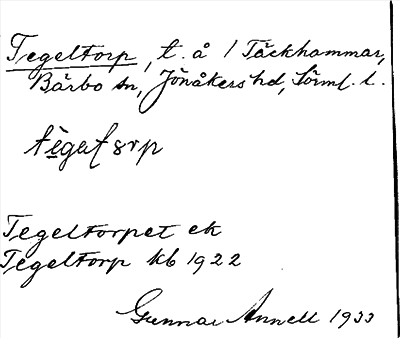 Tegeltorp, t. å / Täckhammar,
Bärbo sn, Jönåkers hd, Sörml. l.
Tegeltorpet ek
Tegeltorp kb 1922
Gunnar Annell 1933